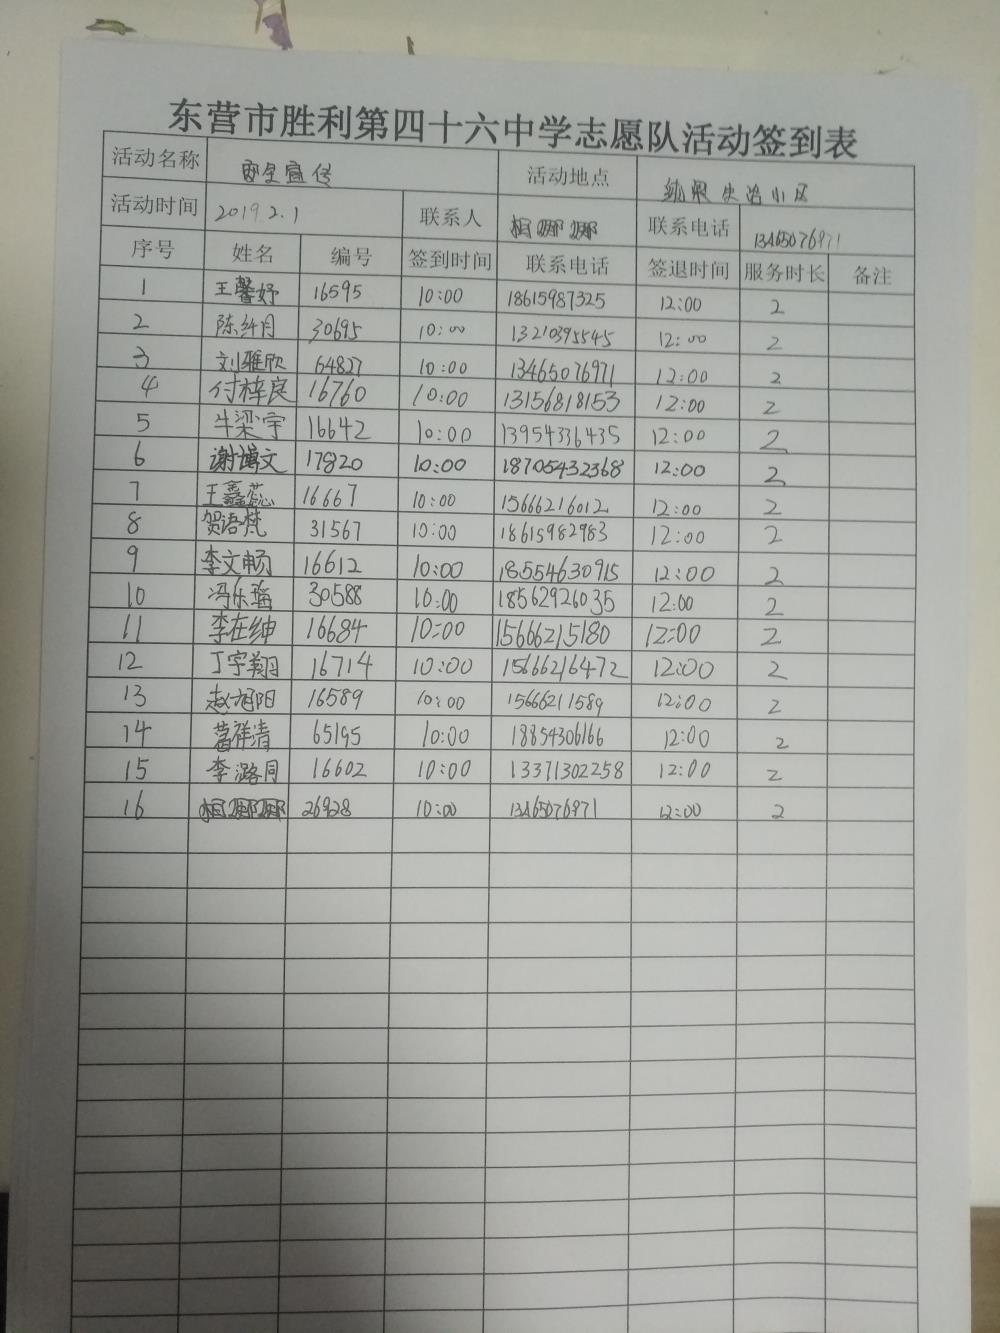 东营市胜利第四十六中学志愿队活动签到表
活动名称 安全宣传 活动地点 小区
活动时间 2019.2.1 联系人 相娜娜 联系电话 13465076971
序号 姓名 编号 签到时间 联系电话 签退时间 服务时长 备注
1 王馨妤 16595 10:00 18615987325 12:00 2
2 陈纤月 30695 10:00 13210395545 12:00 2
3 刘雅欣 64827 10:00 13465076971 12:00 2
4 付梓良 16760 10:00 13156818153 12:00 2
5 牛梁宇 16642 10:00 13954336435 12:00 2
6 谢博文 17820 10:00 18705432368 12:00 2
7 王鑫蕊 16667 10:00 15666216012 12:00 2
8 贺语梵 31567 10:00 18615982983 12:00 2
9 李文畅 16612 10:00 18554630915 12:00 2
10 冯乐瑶 30588 10:00 18562926035 12:00 2
11 李在绅 16684 10:00 15666215180 12:00 2
12 丁宇翔 16714 10:00 15666216472 12:00 2
13 赵旭阳 16589 10:00 15666211589 12:00 2
14 葛祥清 65195 10:00 18854306166 12:00 2
15 李潞同 16602 10:00 13371302258 12:00 2
16 相娜娜 26928 10:00 13465076971 12:00 2